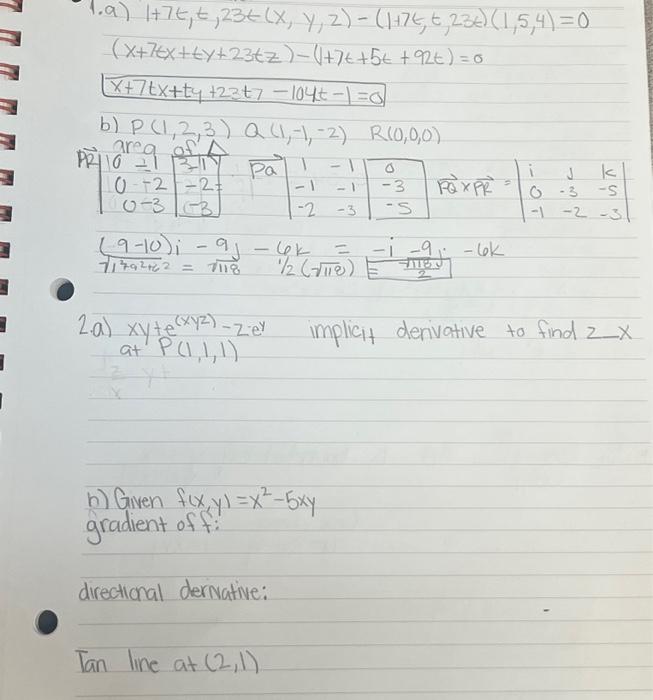 1.a) 1+7t, t, 23t (x, y, z) - (1+7t, t, 23t)(1,5,4) = 0
(x+7tx+ty+23tz) - (1+7t+5t+92t) = 0
x+7tx+ty+23tz - 104t - 1 = 0
b) P(1,2,3) Q(1,-1,-2) R(0,0,0)
area of △
PR 0 -1 -1 PQ 1 -1 0 PQ x PR = i j k
0 -2 -2 -1 -1 -3 0 -3 -5
0-3 -3 -2 -3 -5 -1 -2 -3
(9-10)i - 9j - 6k = -i -9j -6k
= √118 1/2 (√118) = √118 / 2
2.a) xy+e^(xyz) - z·e^y implicit derivative to find z_x
at P(1,1,1)
b) Given f(x,y) = x² - 5xy
gradient of f:
directional derivative:
Tan line at (2,1)